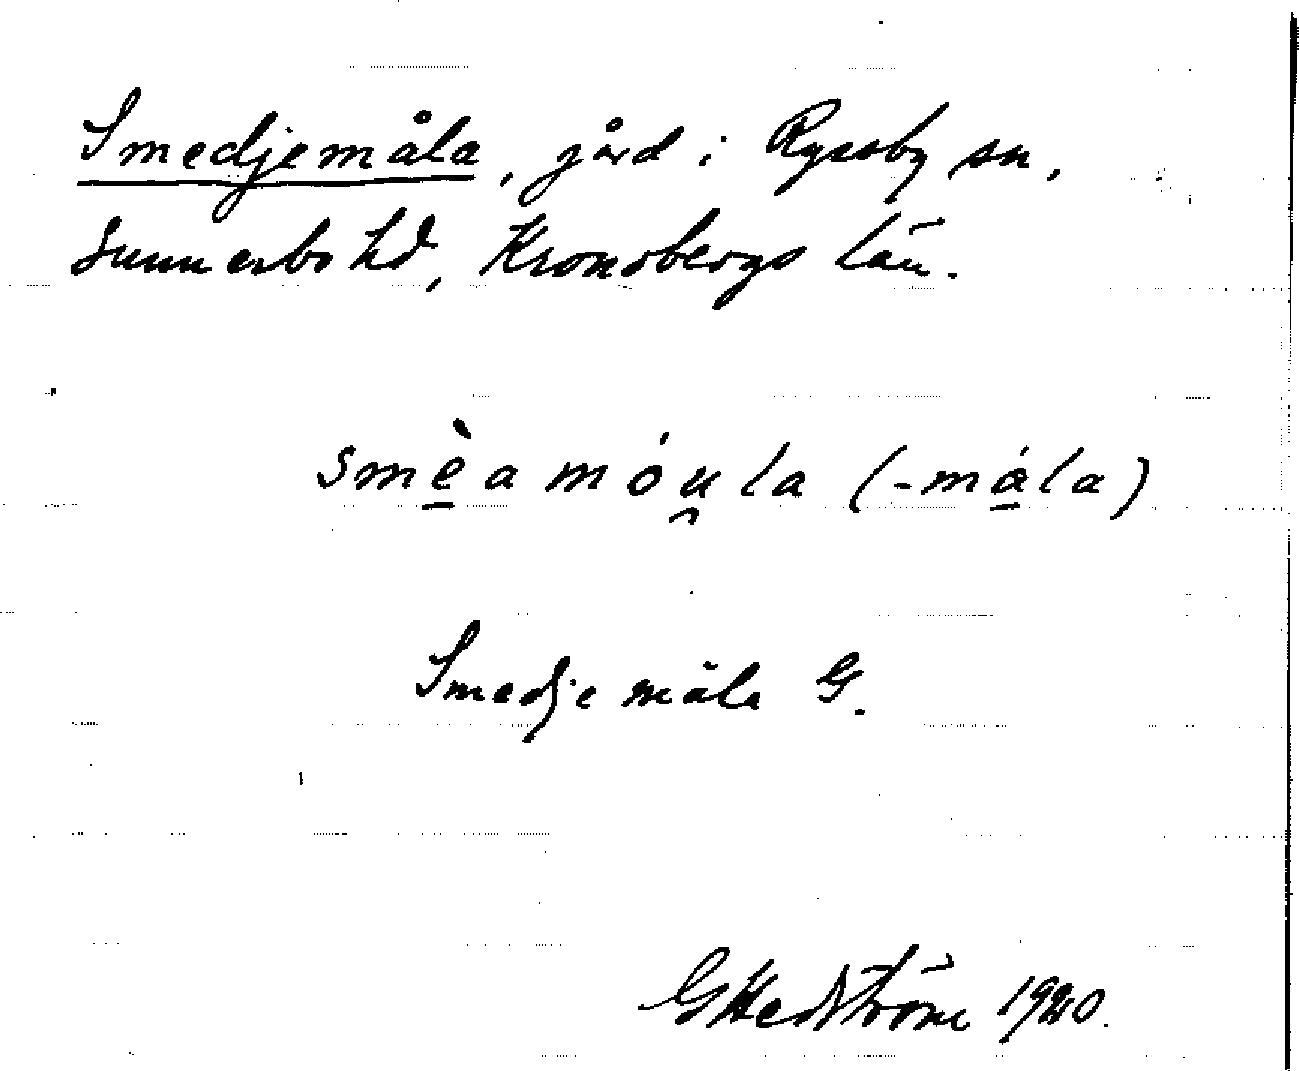 Smedjemåla, gård i Ryssby sn,
Sunnerbo hd, Kronobergs län.
smèa móu̯la (-mála)
Smedjemåla G.
G Hedström 1920.